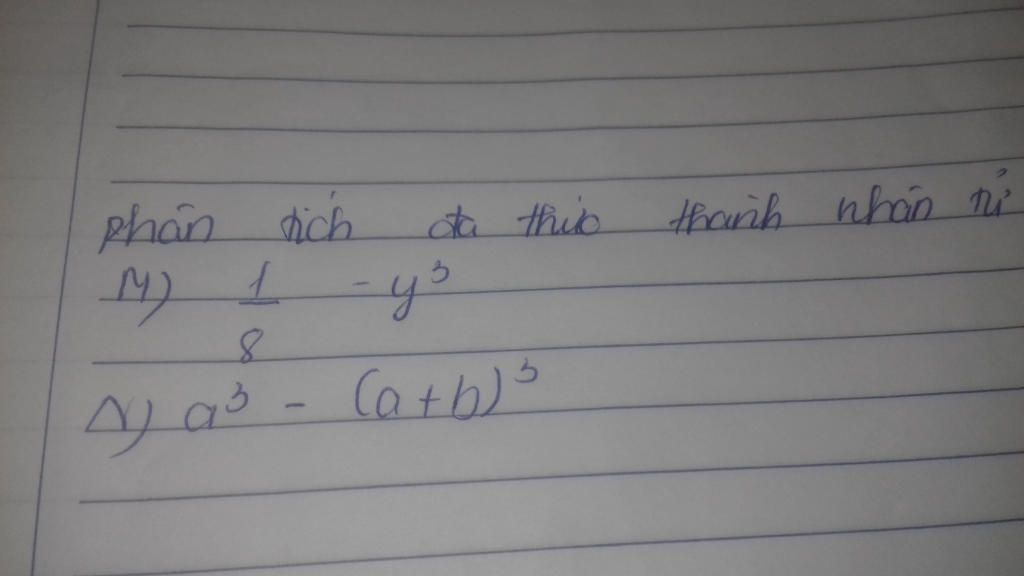 phân tích đa thức thành nhân tử
M) 1/8 - y³
N) a³ - (a+b)³